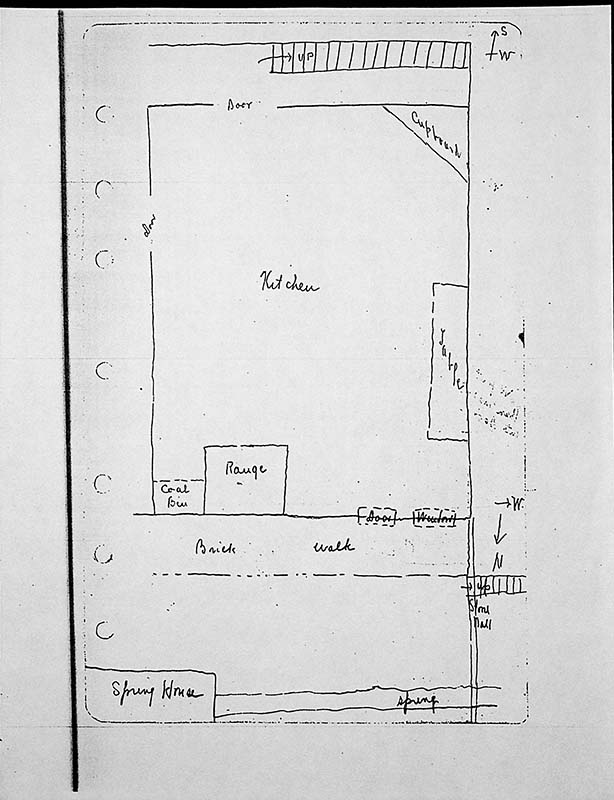 S
UP
W
Door
Cupboard
Door
Kitchen
Table
Range
Coal
Bin
W
Door
Window
Brick walk
N
UP
Stone
Wall
Spring House
spring